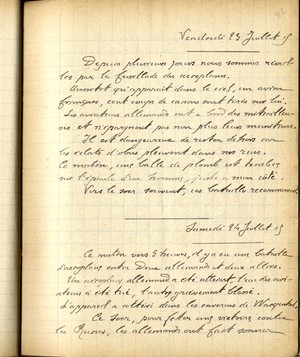 Vendredi 23 Juillet 15
Depuis plusieurs jours nous sommes réveil-
lés par la fusillade des aéroplanes.
Aussitôt qu'apparait dans le ciel, un avion
français, cent coups de canons sont tirés sur lui.
Les aviateurs allemands ont à bord des mitrailleu-
ses et n'épargnent pas non plus leurs munitions.
Il est dangereux de rester dehors car
les éclats d'obus pleuvent dans nos rues.
Ce matin, une balle de plomb est tombée
sur l'épaule d'un homme, juste à mon côté.
Vers le soir souvent, ces batailles recommencent.
Samedi 24 Juillet 15
Ce matin vers 5 heures, il y a eu un bataille
d'aéroplane entre deux allemands et deux alliés.
Un aéroplane allemand a été atteint l'un des avia-
teurs a été tué, l'autre grièvement blessé.
L'appareil a atterri dans les environs de
Ce soir, pour fêter une victoire contre
les Russes, les allemands ont fait sonner